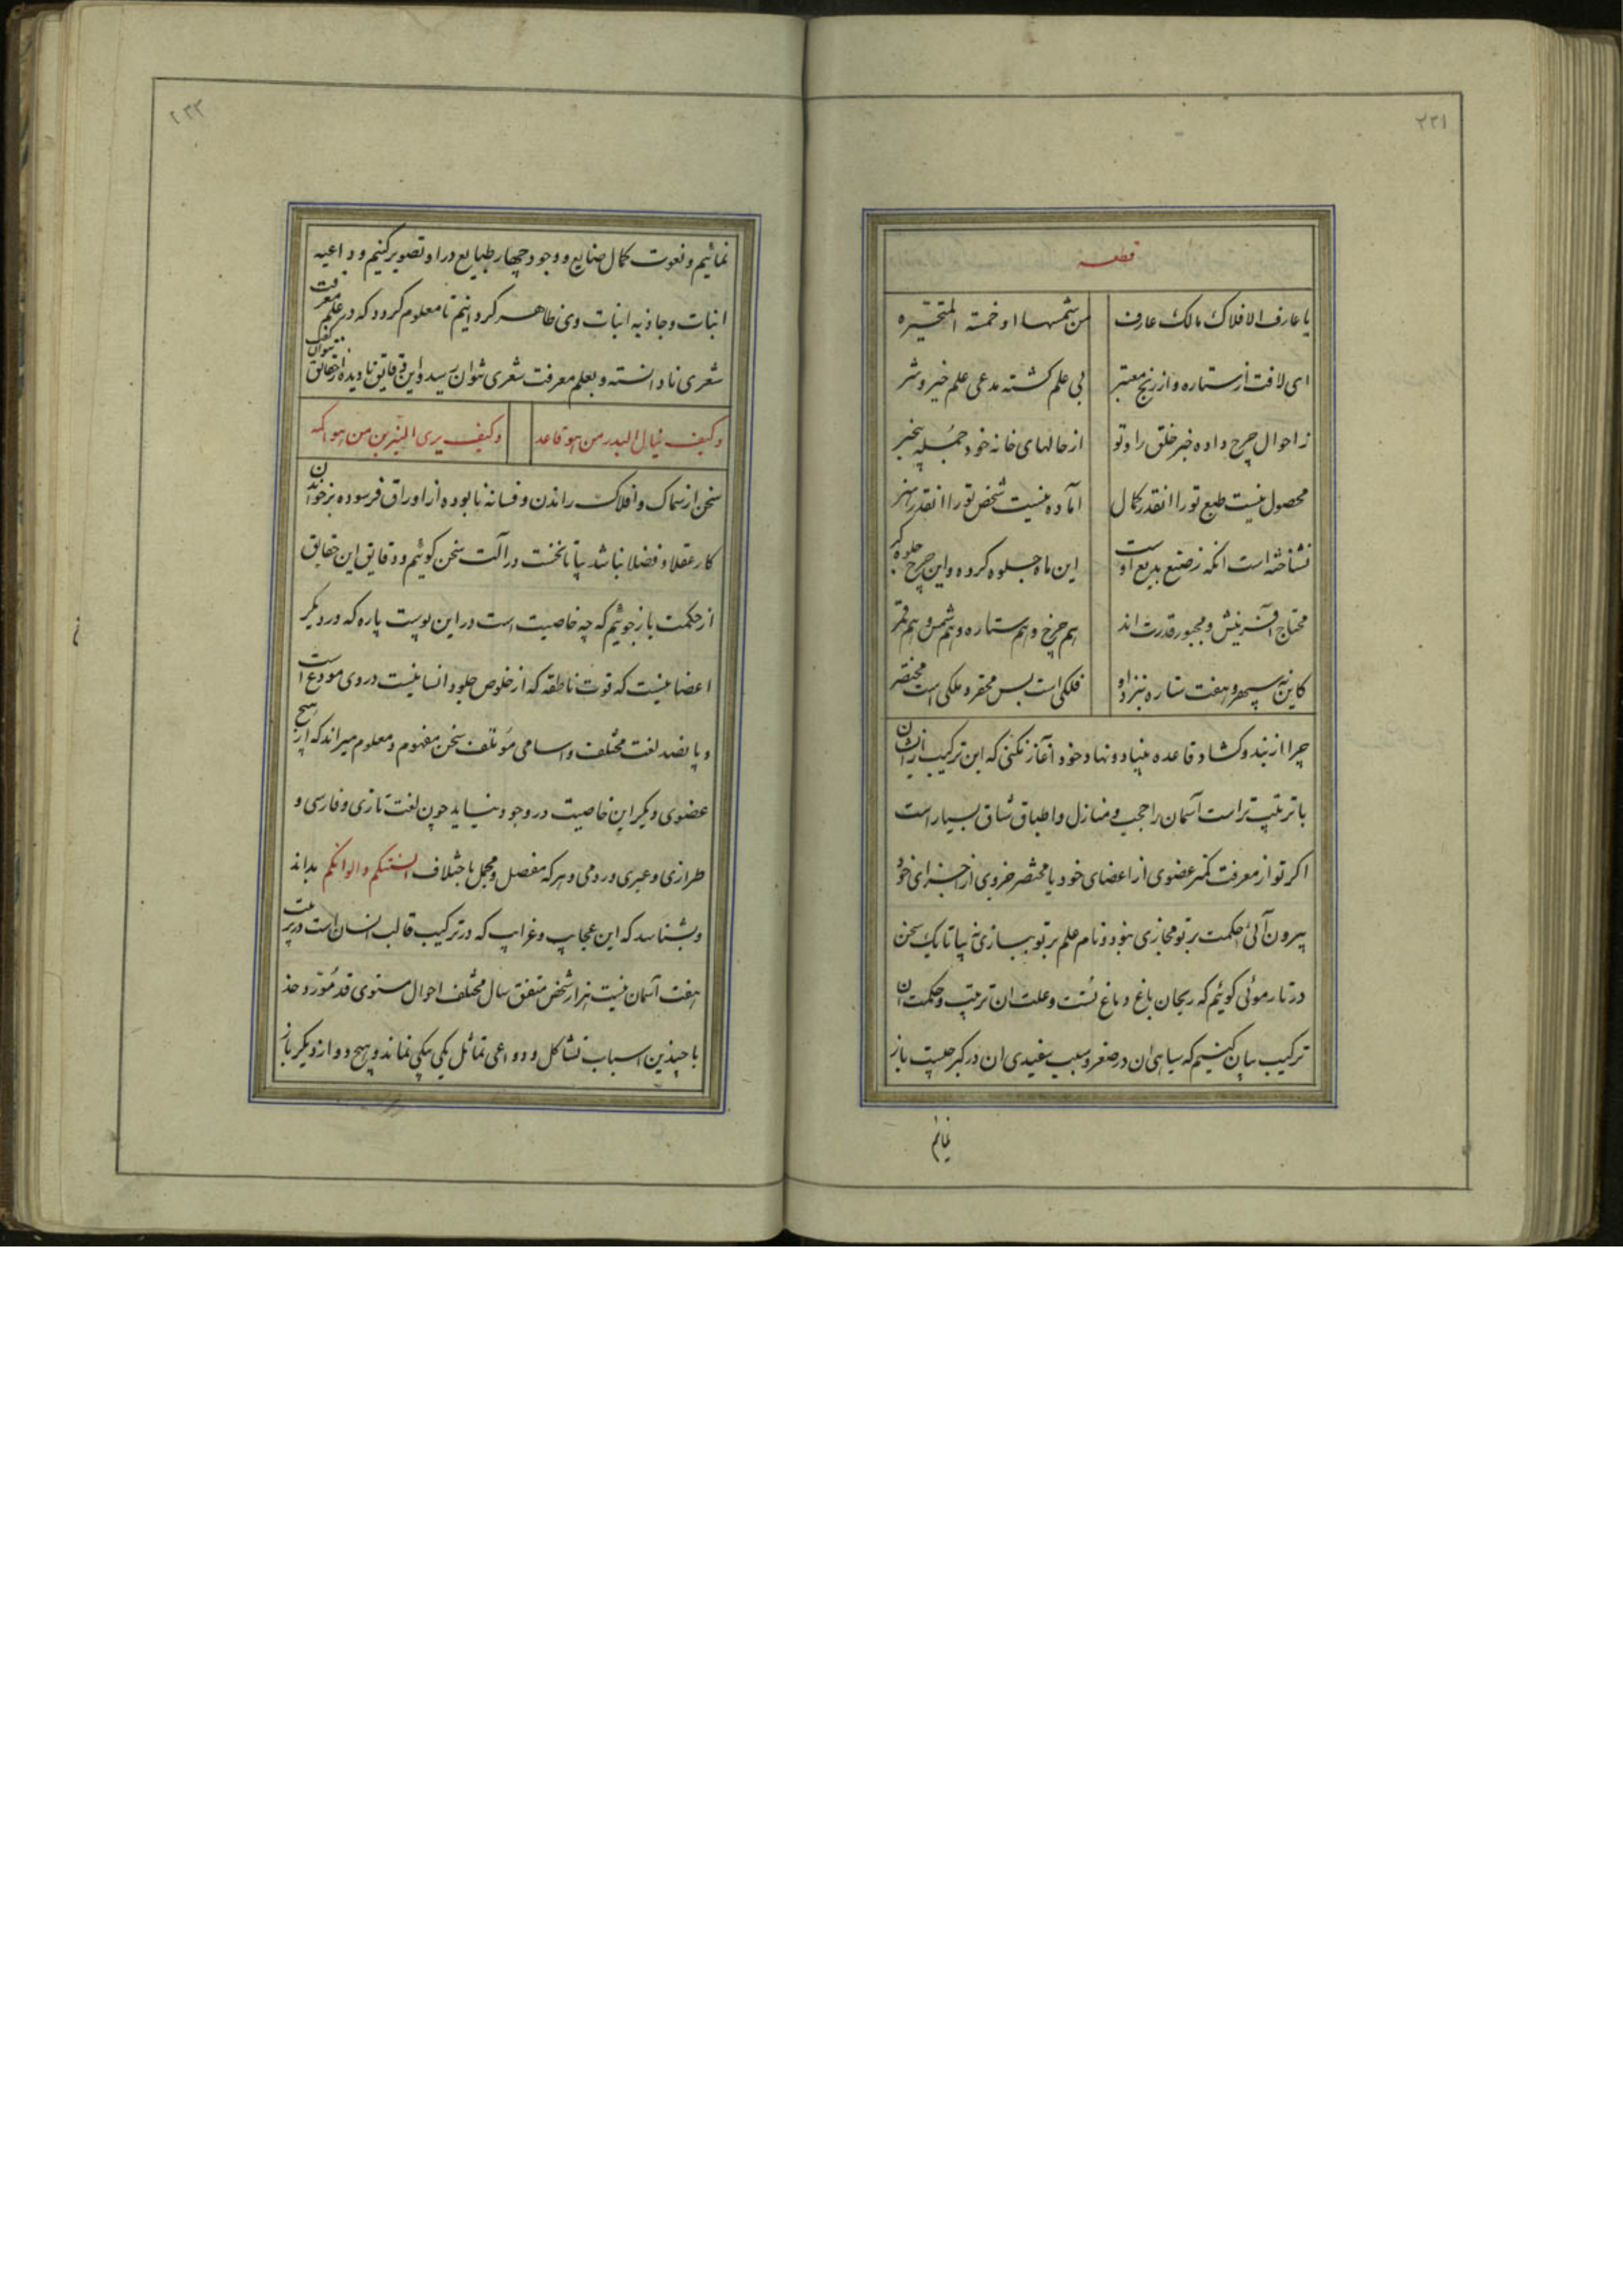 ۲۲۱
قطعه
یا عارف الافلاک مالک عارف
من شمسها او خمسة المتحیره
ای لافت از ستاره و از زیج معتبر
بی علم کشته مدعی علم خیر و شر
ز احوال چرخ داده خبر خلق را و تو
از حالهای خانه خود جمله بیخبر
محصول نیست طبع تو را انقدر کمال
آماده نیست شخص تو را انقدر هنر
نشناخته است انکه ز صنع بدیع اوست
این ماه جلوه کرده و این چرخ جلوه کر
محتاج آفرینش و مجبور قدرت اند
هم چرخ و هم ستاره و هم شمس و هم قمر
کاین نه سپهر و هفت ستاره بنزد او
فلکی است بس محقر و ملکی است مختصر
چرا از بند و کشاد قاعده بنیاد و نهاد خود آغاز نکنی که این ترکیب را از ان
با ترتیب تر است آسمان را حجب و منازل و اطباق شاق بسیار است
اکر تو از معرفت کمتر عضوی از اعضای خود یا مختصر جزوی از اجزای خود
بیرون آئی حکمت بر تو مجازی نبود و نام علم بر تو ببازی نه بیا تا یک سخن
در تار موئی کوئیم که ریحان باغ دماغ تست و علت ان ترتیب و حکمت ان
ترکیب بیان کنیم که سیاهی ان در صغر و سبب سفیدی ان در کبر چیست باز
نمائیم
۲۲۲
نمائیم و نعوت کمال صنایع و وجود چهار طبایع در او تصویر کنیم و داعیه
انبات و جاذبه انبات وی ظاهر کردانیم تا معلوم کردد که در علم معرفت
شعری نادانسته و بعلم معرفت شعری نتوان رسید و این دقایق نادیده از حقایق نتوان کفت
و کیف ینال البدر من هو قاعد
و کیف یری النیرین من هو اکمه
سخن از سماک و افلاک راندن و فسانه نابوده از اوراق فرسوده برخواندن
کار عقلا و فضلا نباشد بیا تا نخست در آلت سخن کوئیم و دقایق این حقایق
از حکمت باز جوئیم که چه خاصیت است در این پوست پاره که در دیکر
اعضا نیست که قوت ناطقه که از خلوص جلود انسانیست در وی مودع است
و پانصد لغت مختلف و اسامی مؤتلف سخن مفهوم و معلوم میراند که از هیچ
عضوی دیکر این خاصیت در وجود نیاید چون لغت تازی و فارسی و
طرازی و عبری و رومی و هر که مفصل و مجمل باختلاف السنتکم و الوانکم بداند
و بشناسد که این عجایب و غرایب که در ترکیب قالب انسان است در تربیت
هفت آسمان نیست هزار شخص متفق سال مختلف احوال مستوی قد مورد خد
با چندین اسباب تشاکل و دواعی تماثل یکی بیکی نماند و هیچ دو از دیکر باز